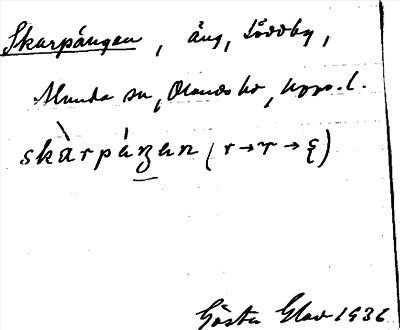 Skarpängen, äng, Söddby,
Alunda sn, Olands hd, Upps. l.
skàrpáŋan (r→r→ʂ)
Gösta Glad 1936